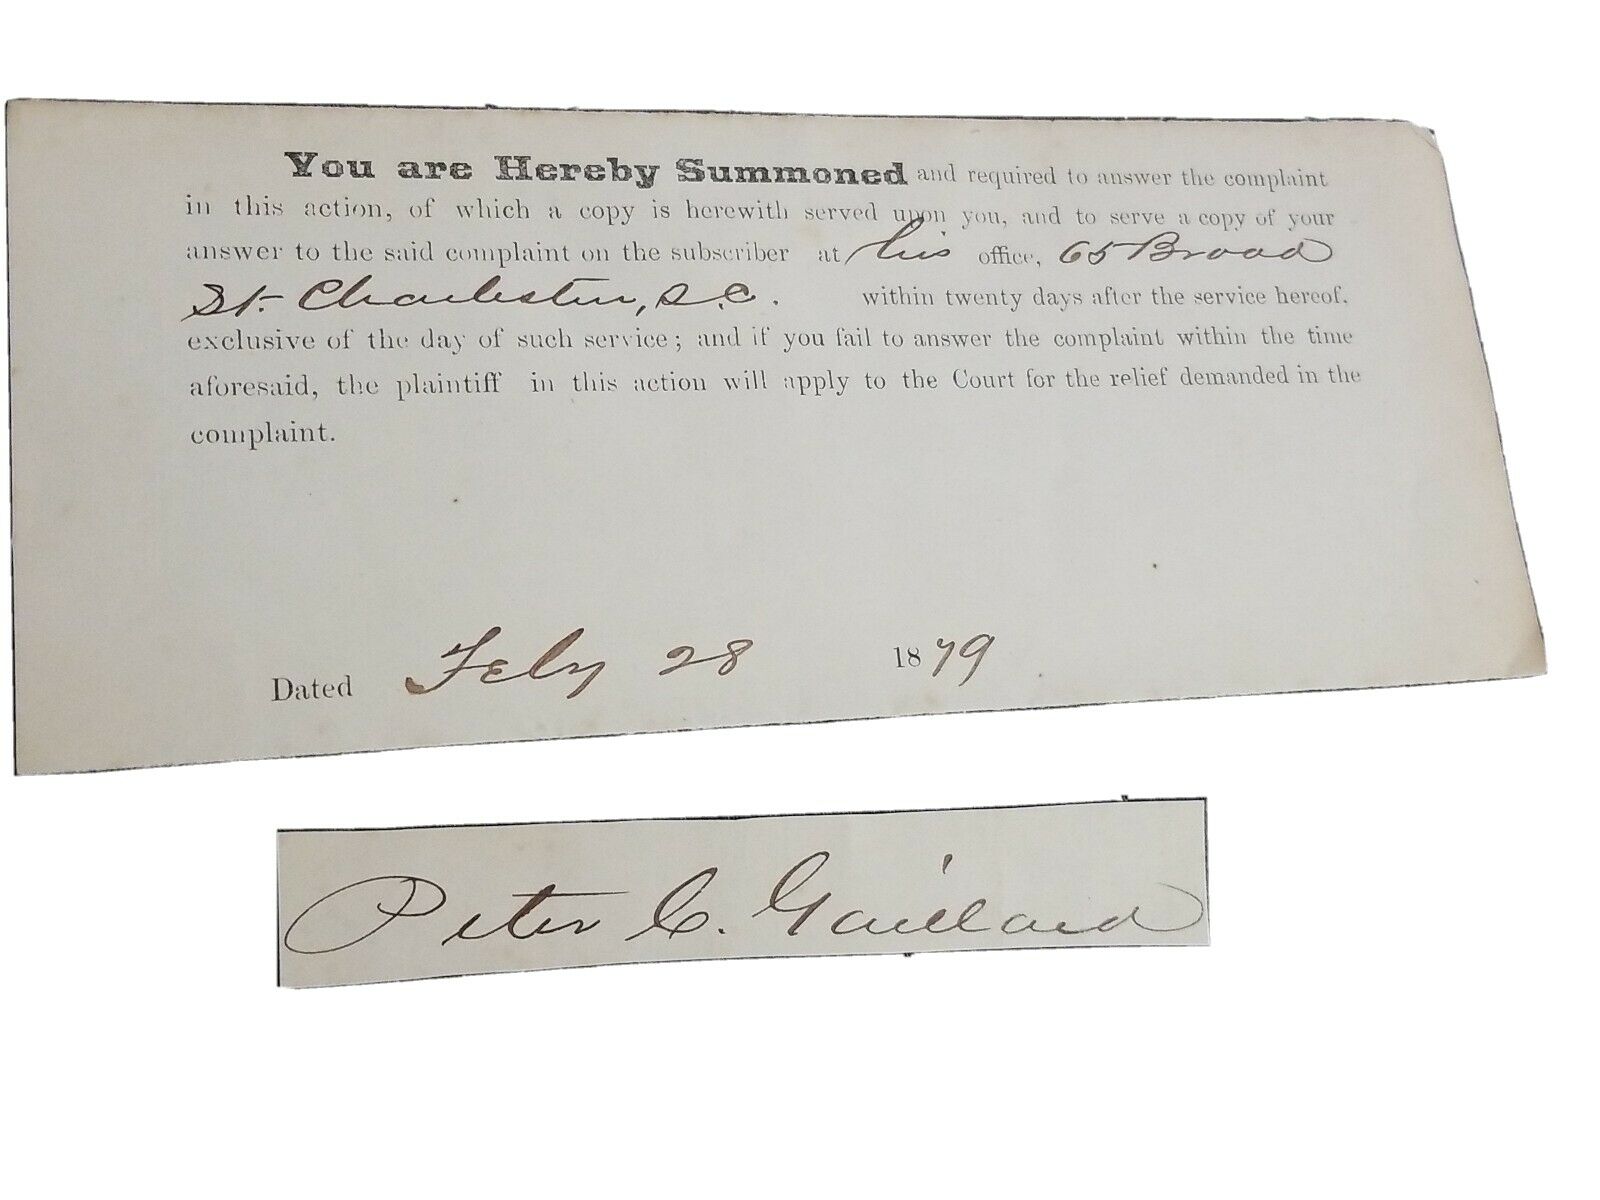 You are Hereby Summoned and required to answer the complaint
in this action, of which a copy is herewith served upon you, and to serve a copy of your
answer to the said complaint on the subscriber at his office, 65 Broad
St. Charleston, S.C. within twenty days after the service hereof,
exclusive of the day of such service; and if you fail to answer the complaint within the time
aforesaid, the plaintiff in this action will apply to the Court for the relief demanded in the
complaint.
Dated Feby 28 1879
Peter C. Gaillard